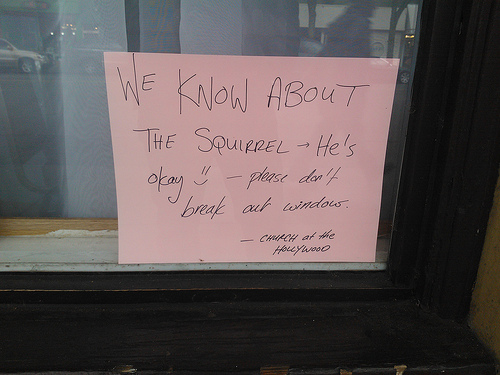 WE KNOW ABOUT
THE SQUIRREL → He's
okay !! — please don't
break our window.
— CHURCH at the
HOLLYWOOD